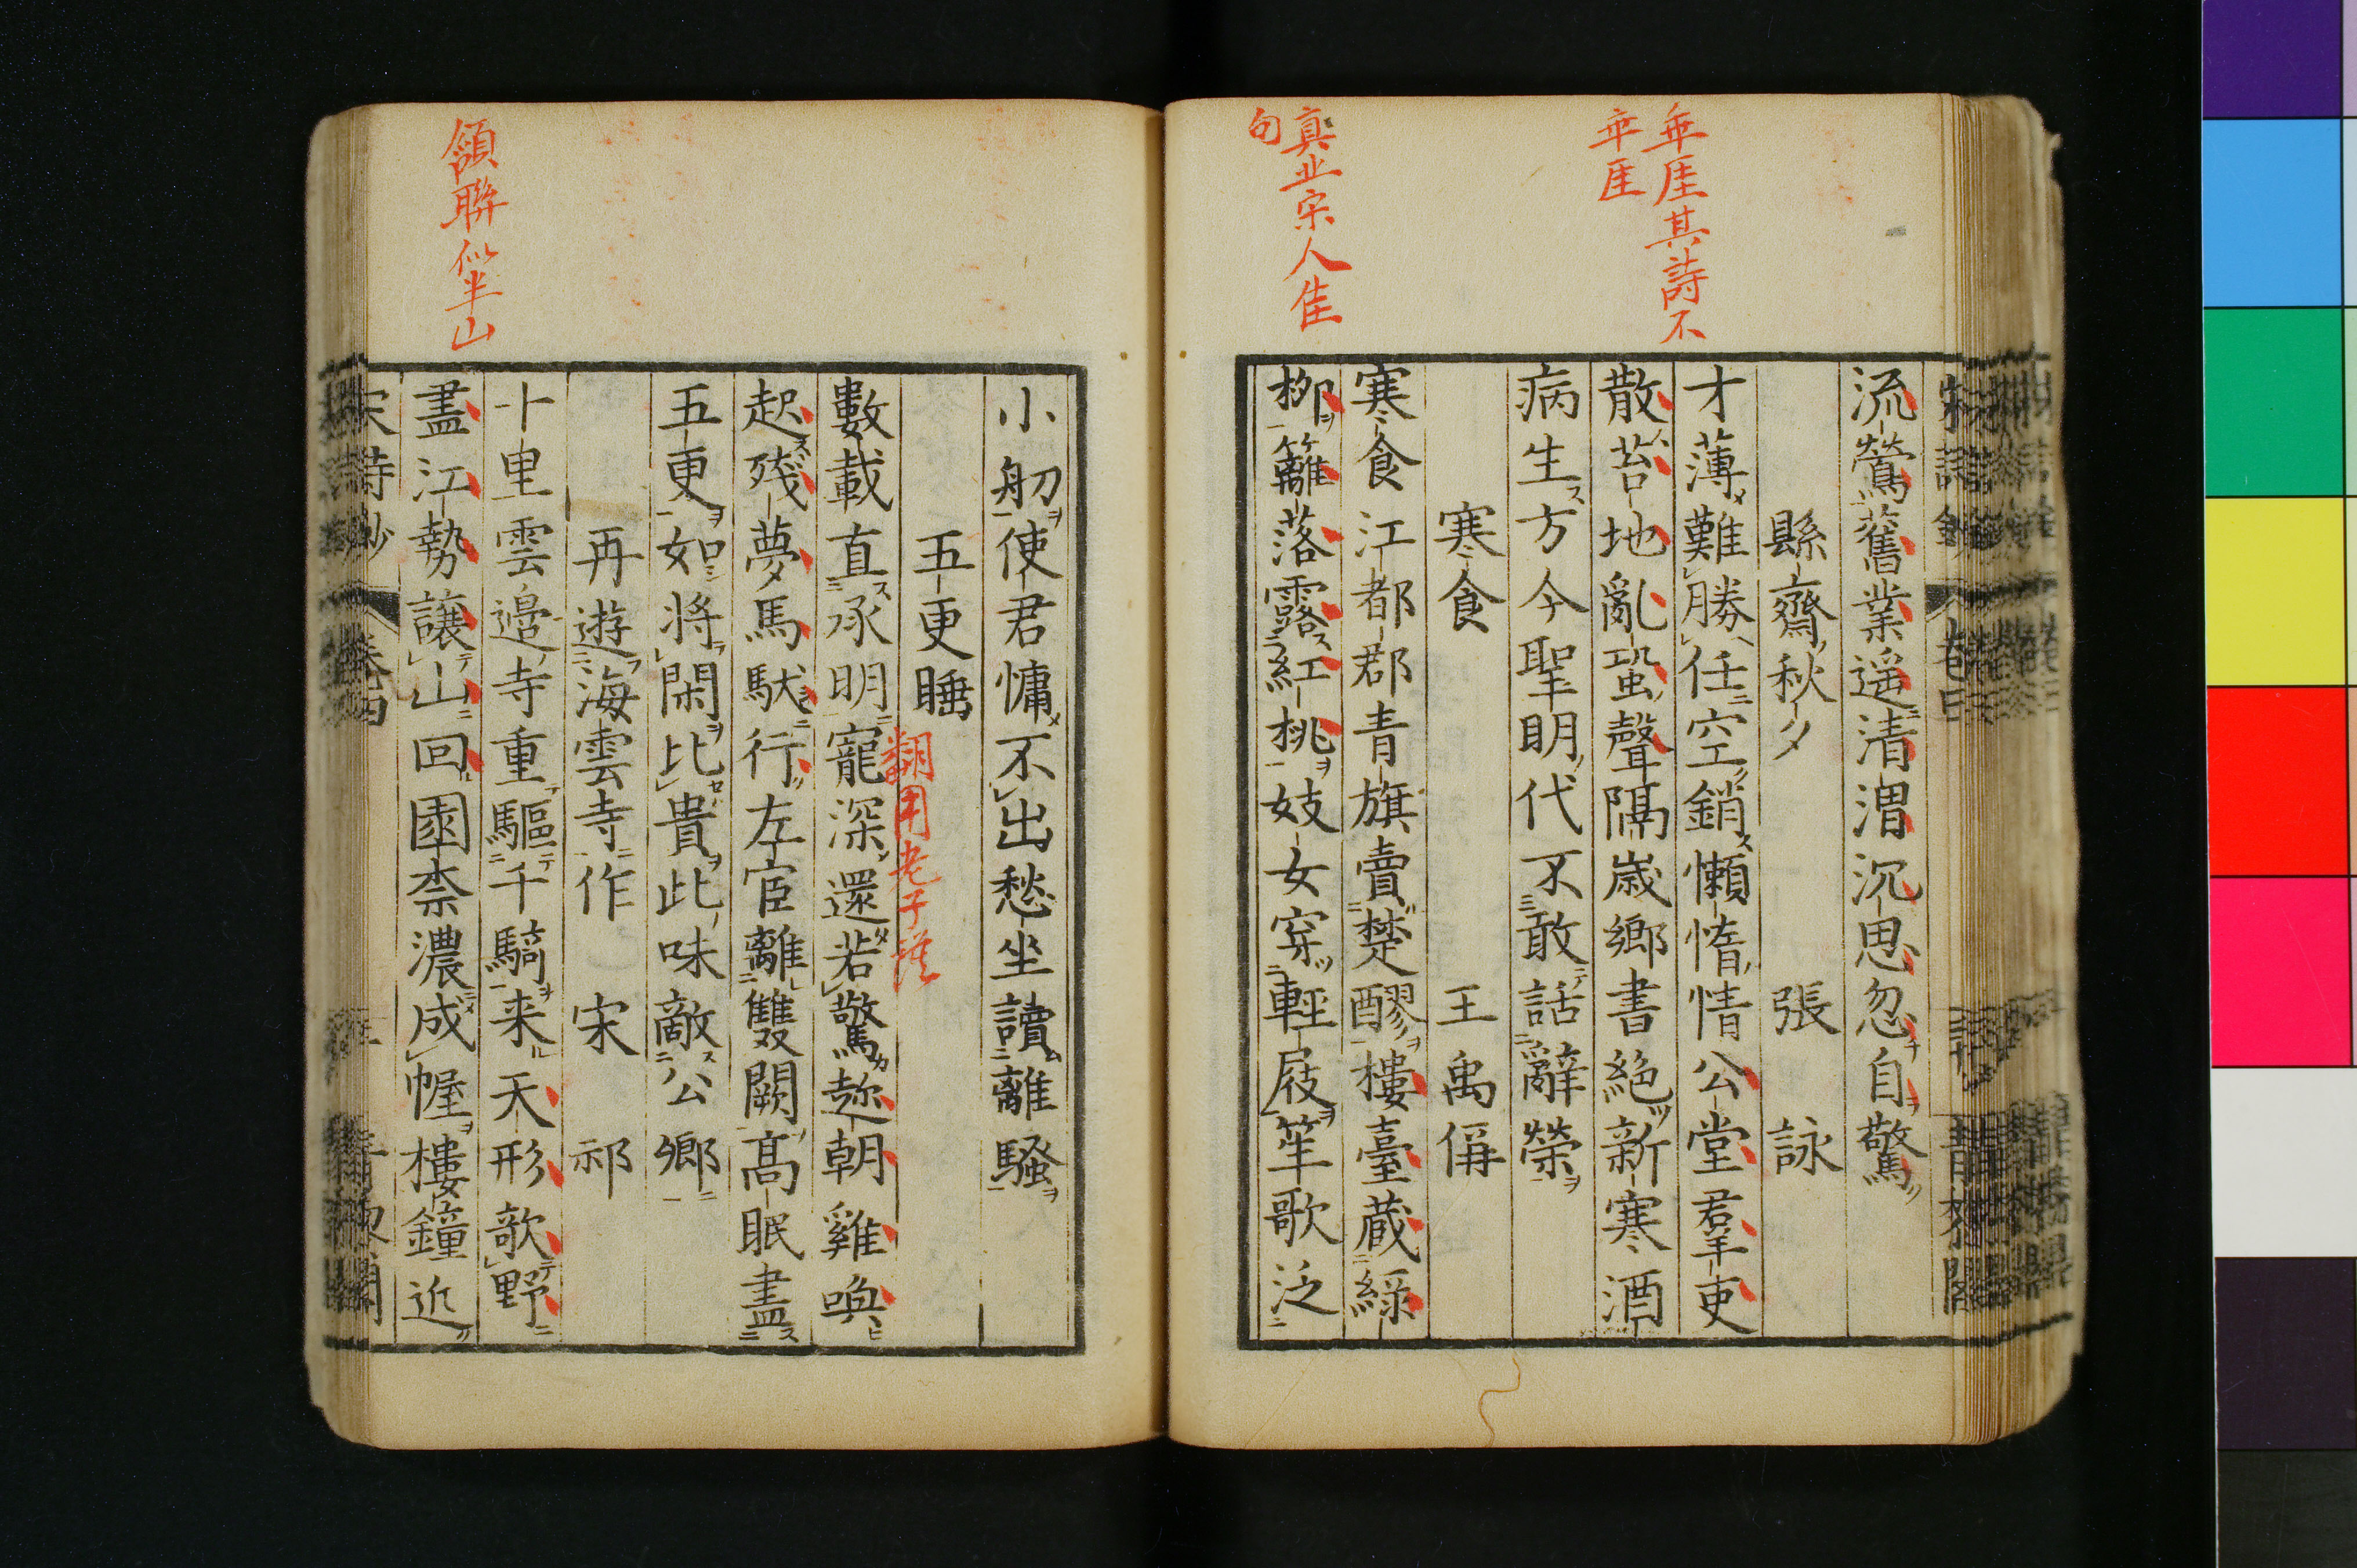 乖厓其詩不
乖厓
真北宋人佳
句
流鶯舊業遥清渭沉思忽自驚
縣齋秋夕　張詠
才薄難勝任空銷懶惰情公堂羣吏
散苔地亂蛩聲隔歳鄉書絶新寒酒
病生方今聖明代不敢話辭榮
寒食　王禹偁
寒食江都郡青旗賣楚醪樓臺蔵緑
栁籬落露紅桃妓女穿輕屐笙歌泛
頷聯似半山
小舠使君慵不出愁坐讀離騷
五更睡
翻用老子語
數載直承明寵深還若驚趂朝雞喚
起殘夢馬馱行左宦離雙闕髙眠盡
五更如將閑比貴此味敵公鄉
再遊海雲寺作　宋祁
十里雲邉寺重驅千騎来天形欹野
盡江勢讓山回園柰濃成幄樓鐘近
宋詩鈔　卷四